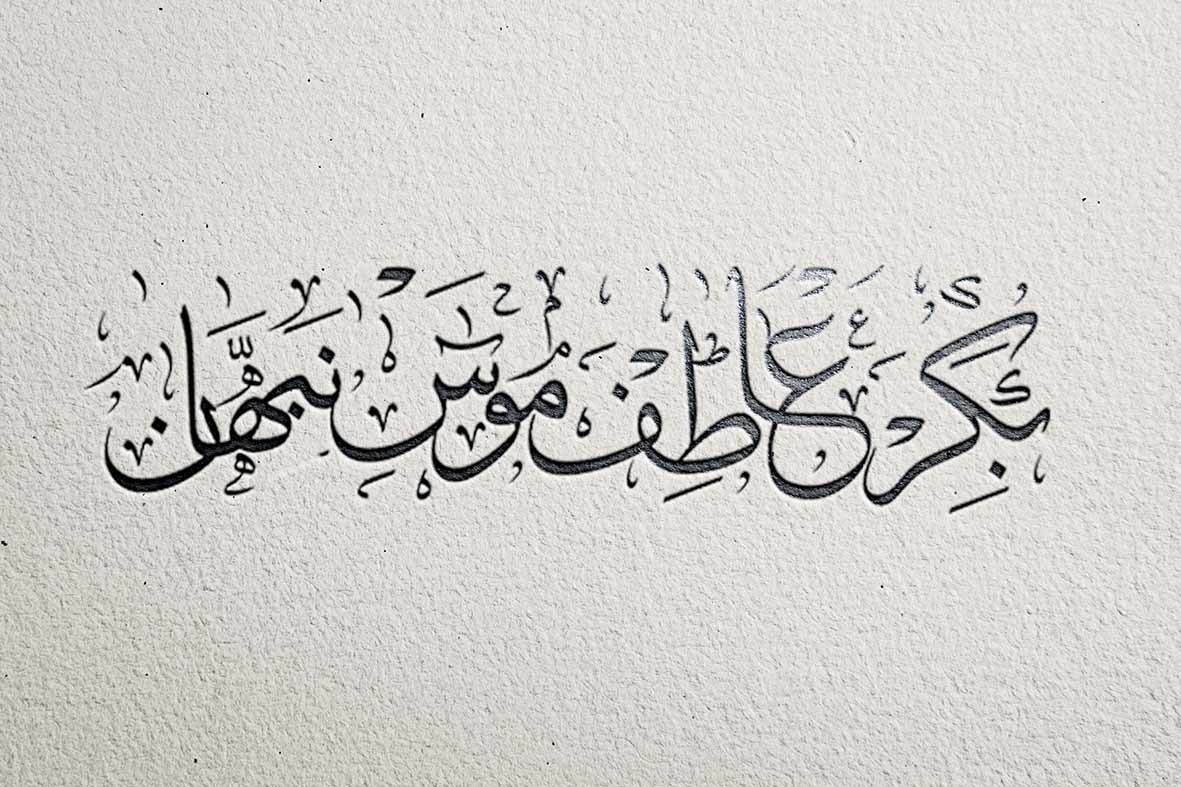 بكر عاطف موسى نبهان